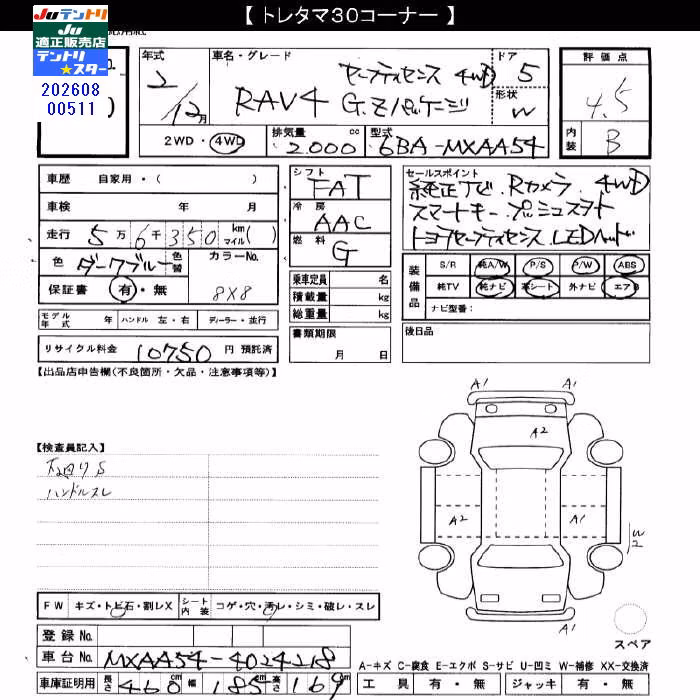 【 トレタマ30コーナー 】
Juテントリ
Ju
適正販売店
テントリ
★スター
202608
00511
No.
年式 車名・グレード ドア 評価点
2/12月 RAV4 セーフティセンス 4WD 5 4.5
G.Zパッケージ 形状 W
2WD・4WD 排気量 2,000 cc 型式 6BA-MXAA54 内装 B
車歴 自家用・( )
車検 年 月
走行 5万6千350 km マイル ( )
色 ダークブルー 色替 カラーNo.
保証書 有・無 8X8
モデル年式 年 ハンドル 左・右 ディーラー・並行
リサイクル料金 10750 円 預託済
シフト FAT
冷房 AAC
燃料 G
乗車定員 名
積載量 kg
総重量 kg
書類期限
月 日
セールスポイント
純正ナビ.Rカメラ.4WD
スマートキー.プッシュスタート
トヨタセーフティセンス.LEDヘッド
装備品 S/R 純A/W P/S P/W ABS
純TV 純ナビ 革シート 外ナビ エアB
ナビ型番：
後日品
【出品店申告欄(不良箇所・欠品・注意事項等)】
【検査員記入】
下回りS
ハンドルスレ
A1 A1
A2
A2 A1
W2
A1
スペア
FW キズ・トビ石・割レX シート内装 コゲ・穴・汚レ・シミ・破レ・スレ
登録No.
車台No. MXAA54-4024218
車庫証明用 長さ 460 cm 幅 185 cm 高さ 169 cm
A-キズ C-腐食 E-エクボ S-サビ U-凹ミ W-補修 XX-交換済
工具 有・無 ジャッキ 有・無